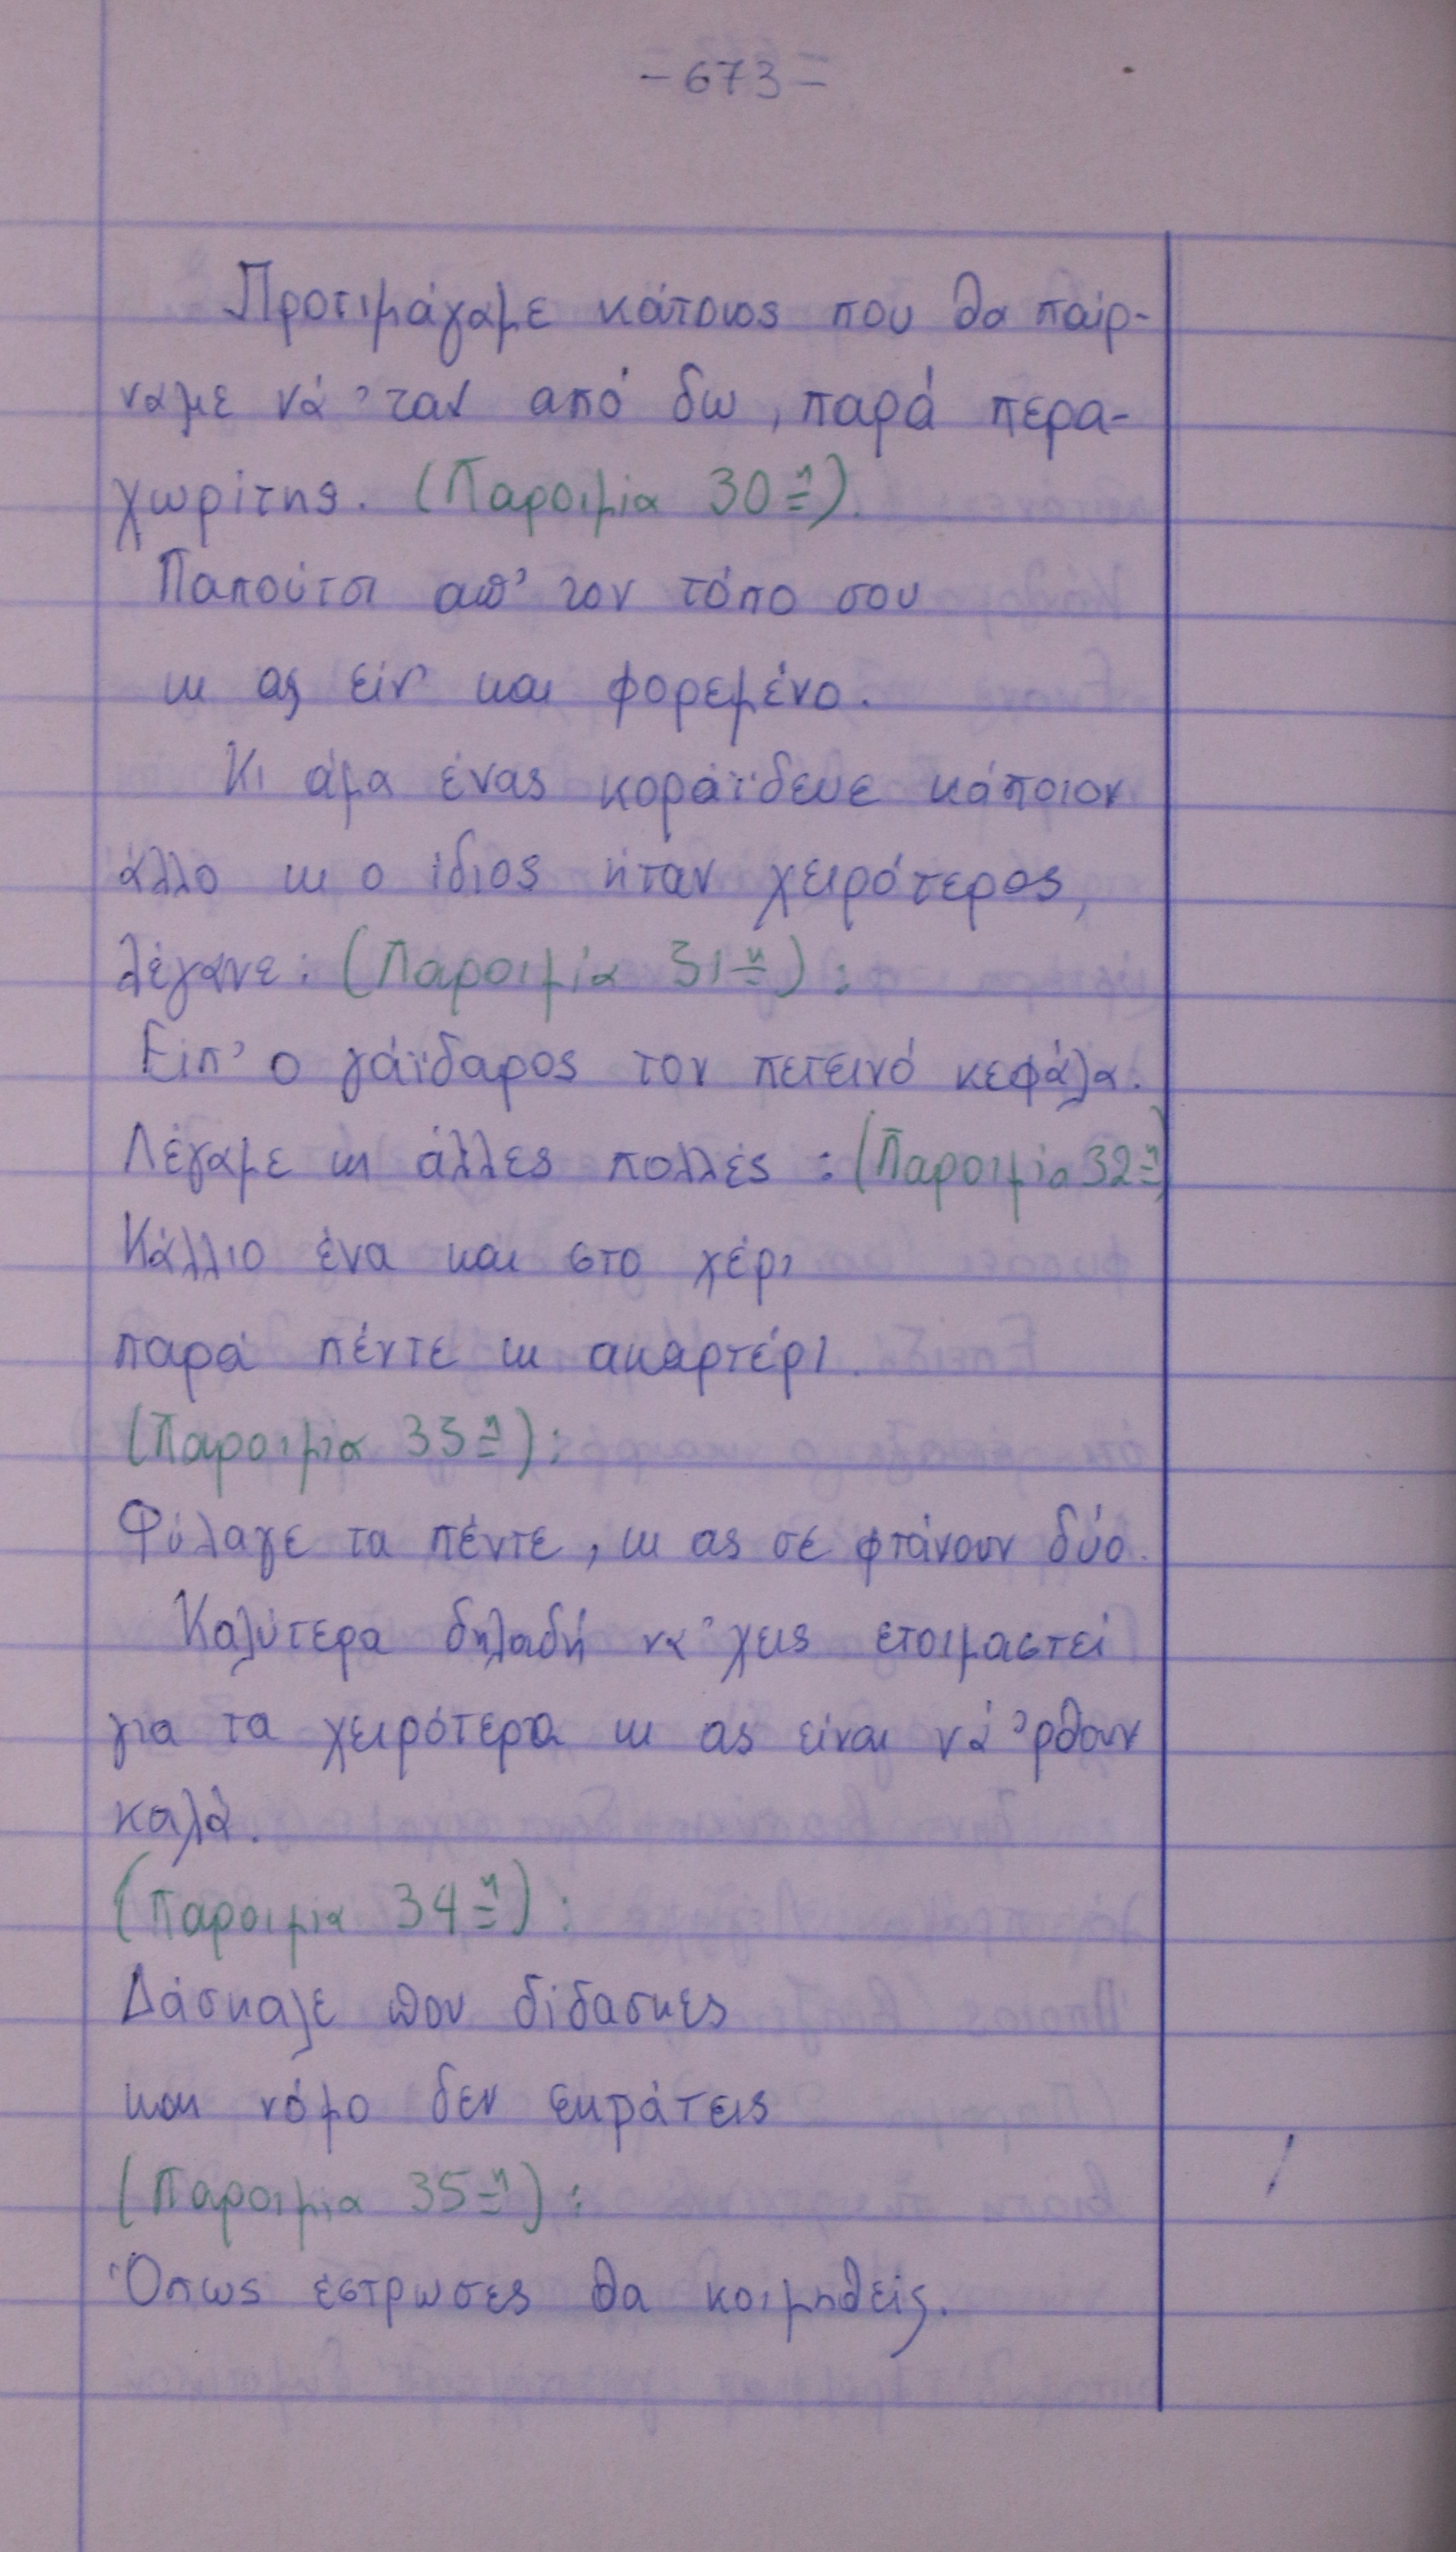 -673=
Προτιμάγαμε κάποιος που θα παίρ-
ναμε νά 'ταν από δω, παρά περα-
χωρίτης. (Παροιμία 30η).
Παπούτσι απ' τον τόπο σου
κι ας είν και φορεμένο.
Κι άμα ένας κοράϊδευε κάποιον
άλλο κι ο ίδιος ήταν χειρότερος,
λέγανε: (Παροιμία 31η):
Είπ' ο γάϊδαρος τον πετεινό κεφάλα.
Λέγαμε κι άλλες πολλές: (Παροιμία 32η)
Κάλλιο ένα και στο χέρι
παρά πέντε κι ακαρτέρι.
(Παροιμία 33η):
Φύλαγε τα πέντε, κι ας σε φτάνουν δύο.
Καλύτερα δηλαδή να 'χεις ετοιμαστεί
για τα χειρότερα κι ας είναι νά 'ρθουν
καλά.
(Παροιμία 34η):
Δάσκαλε που δίδασκες
και νόμο δεν εκράτεις
(Παροιμία 35η):
Όπως έστρωσες θα κοιμηθείς.